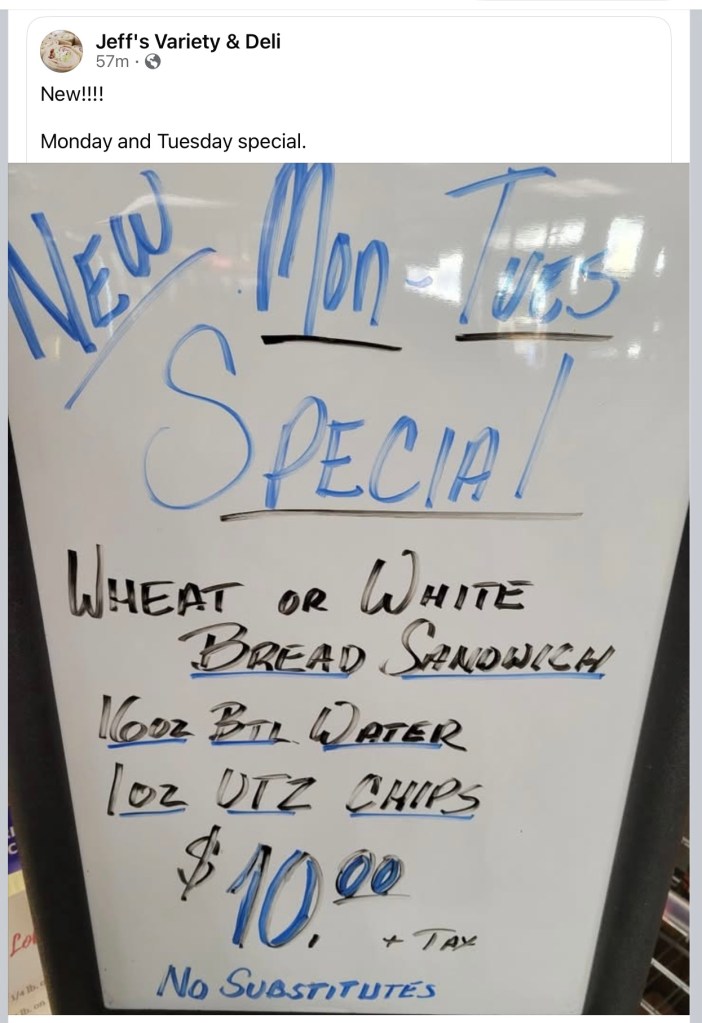 Jeff's Variety & Deli
57m ·
New!!!!
Monday and Tuesday special.
NEW Mon - TUES
SPECIAL
WHEAT OR WHITE
BREAD SANDWICH
16oz BTL WATER
1oz UTZ CHIPS
$10.00
+ TAX
NO SUBSTITUTES